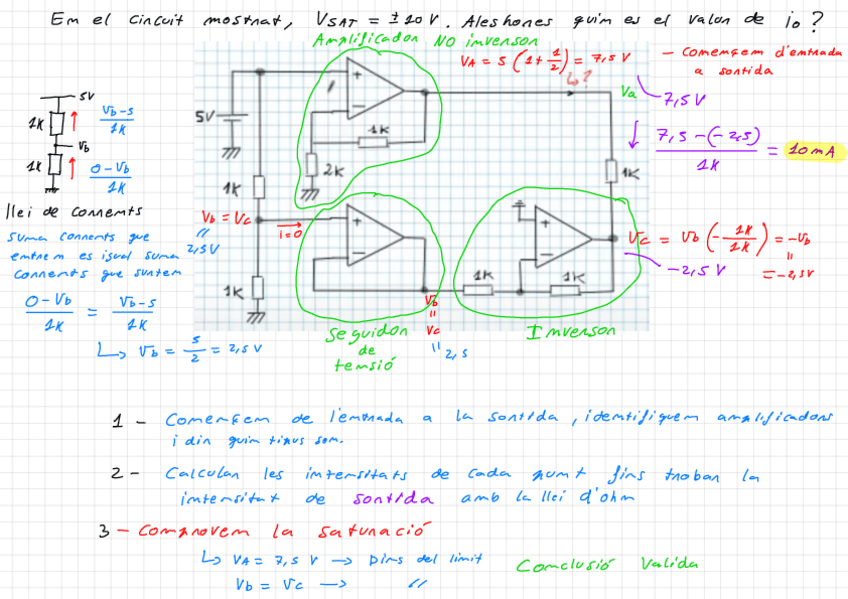 En el circuit mostrat, VSAT = ±10V. Aleshores quin es el valor de io?
Amplificador NO inversor
VA = 5 (1+1/2) = 7,5 V
- comencem d'entrada
a sortida
io?
Va
7,5V
5V
Vb-5
1K
1K
Vb
1K
0-Vb
1K
5V
1K
2K
7,5-(-2,5)
1K
= 10mA
1K
1K
llei de corrents
suma corrents que
entren es igual suma
corrents que surten
0-Vb
1K
=
Vb-5
1K
↳ Vb = 5/2 = 2,5 V
Vb = Vc
"
2,5V
i=0
1K
Vc = Vb (-1K/1K) = -Vb
"
= -2,5V
-2,5 V
1K
1K
Vb
"
Vc
" 2,5
Seguidor
de
tensió
Inversor
1 - Comencem de l'entrada a la sortida, identifiquem amplificadors
i dir quin tipus son.
2 - Calcular les intensitats de cada punt fins trobar la
intensitat de sortida amb la llei d'ohm
3 - Comprovem la saturació
↳ VA = 7,5 V → Dins del limit
Vb = Vc → "
Conclusió Valida